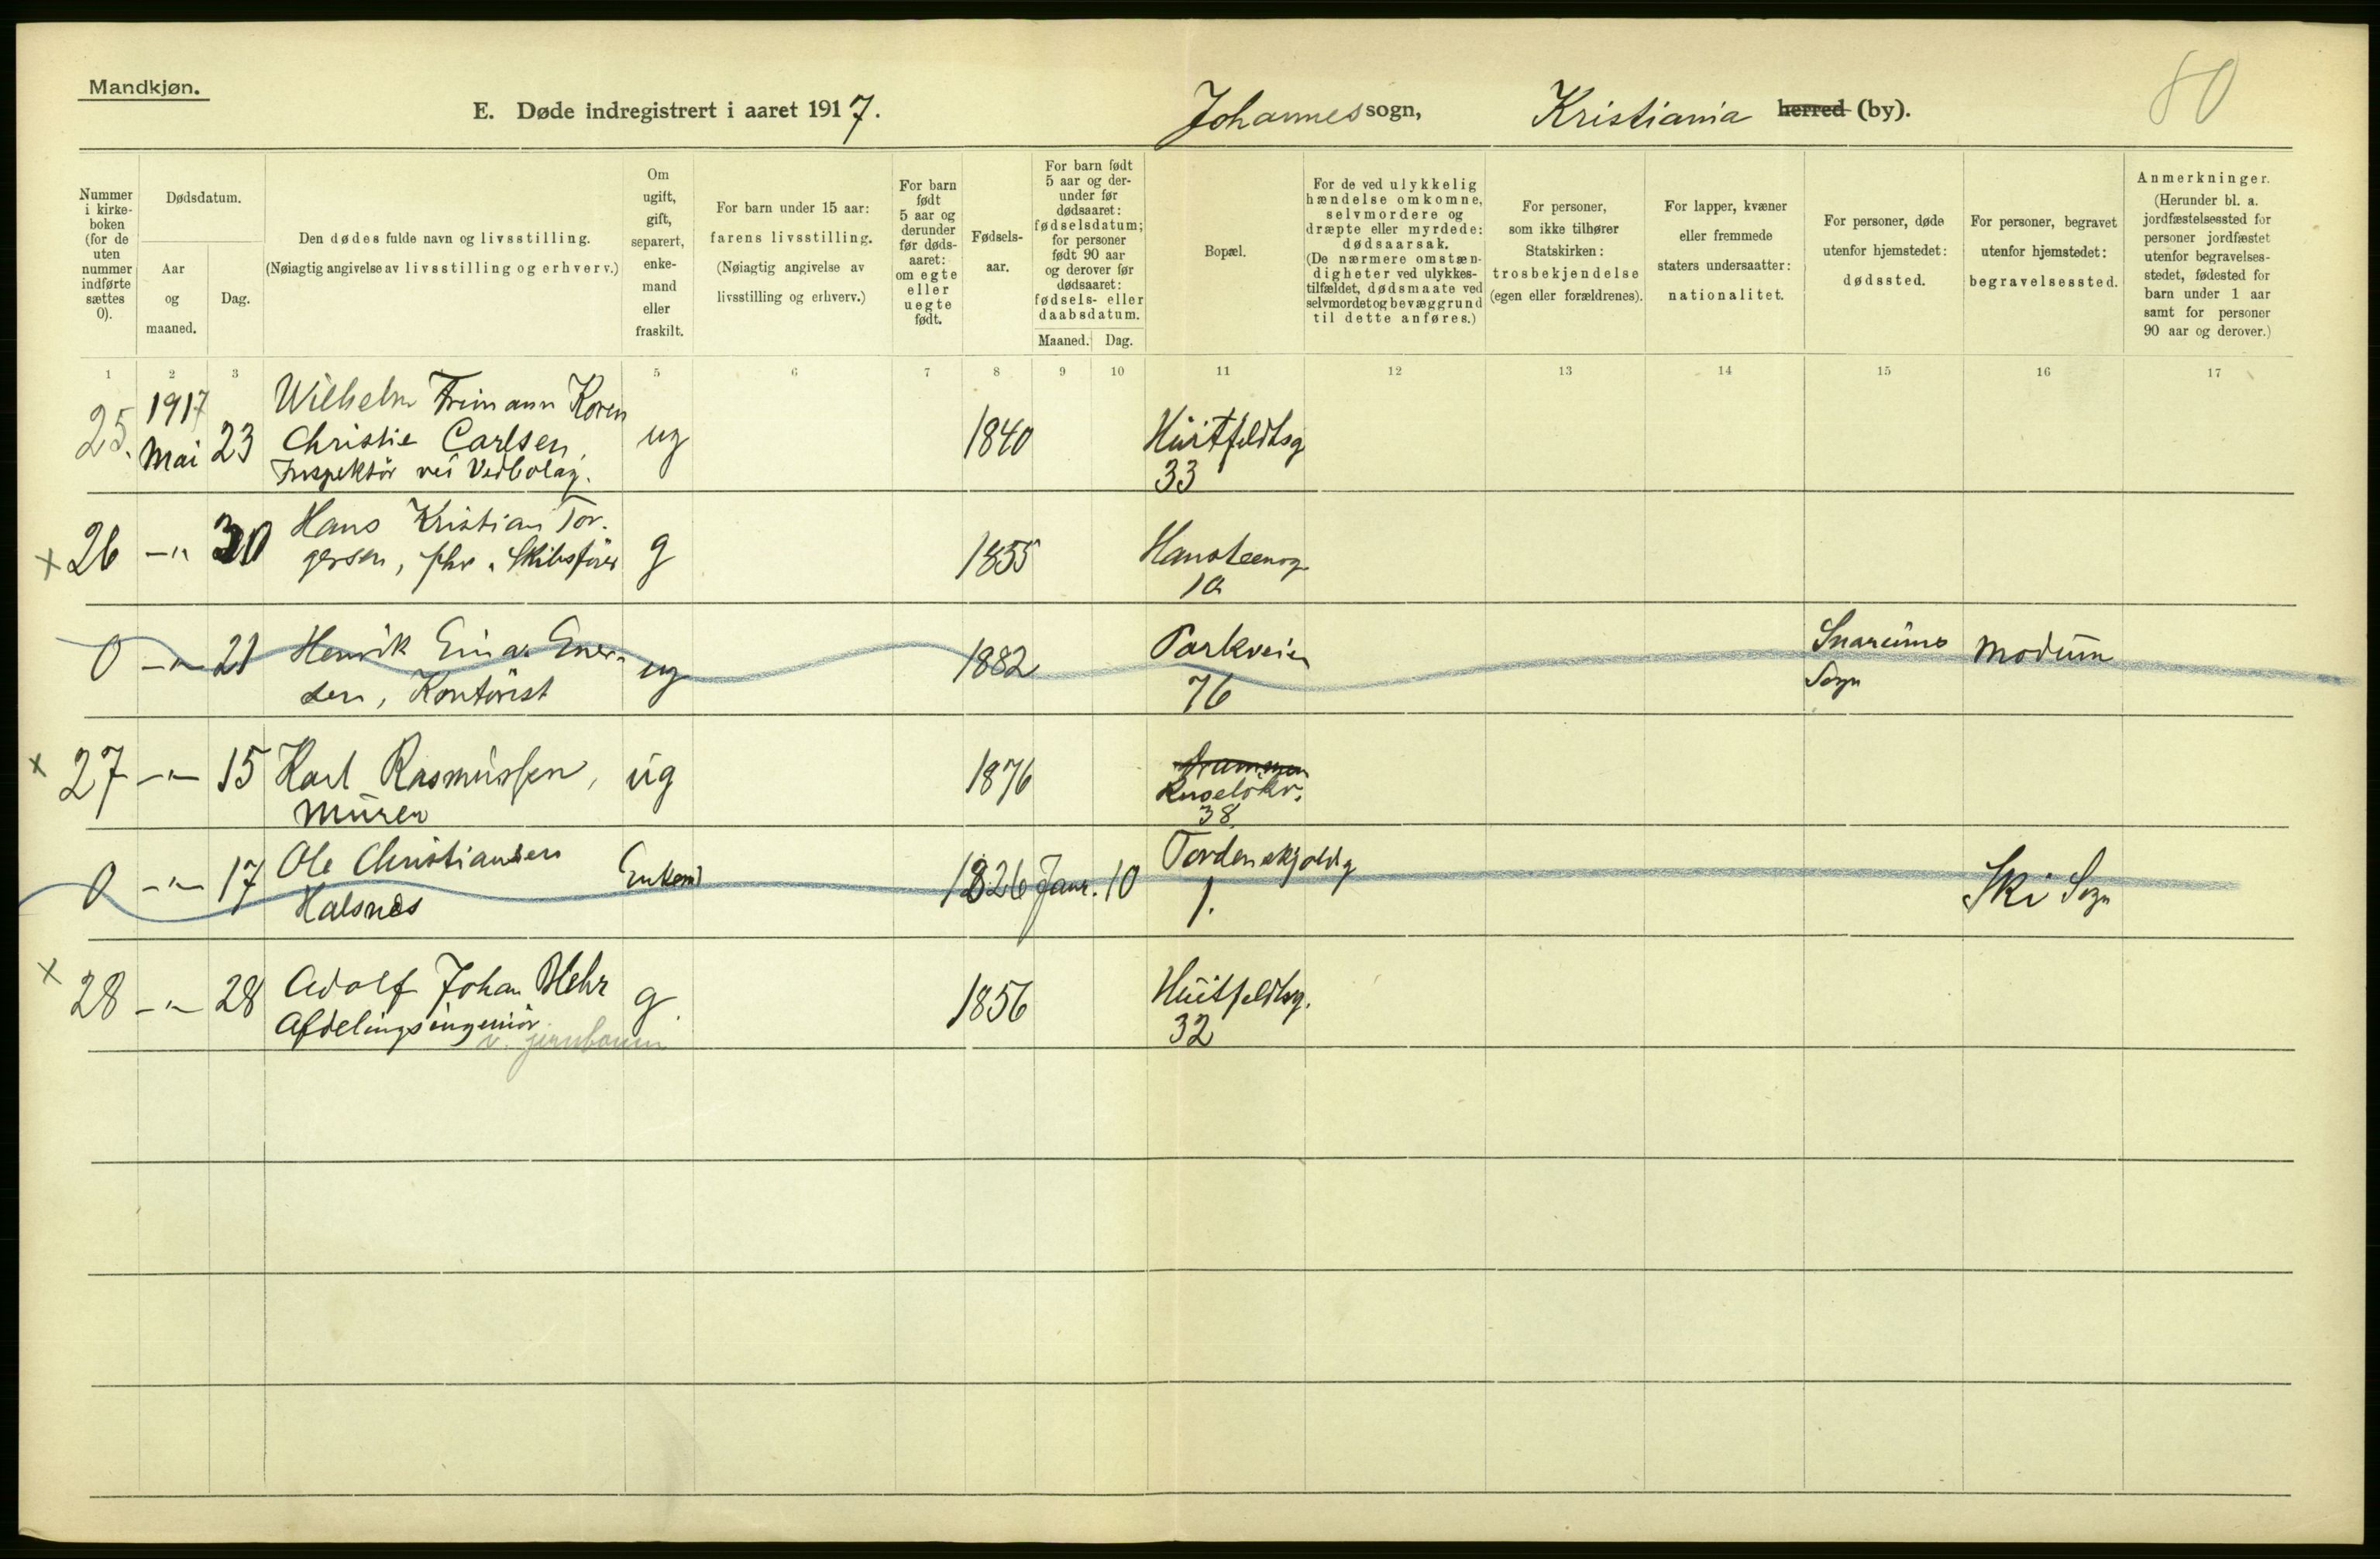 Mandkjøn.
80
E. Døde indregistrert i aaret 1917. Johannes sogn, Kristiania herred (by).
Nummer i kirkeboken (for de uten nummer indførte sættes 0).
Dødsdatum.
Aar og maaned.
Dag.
Den dødes fulde navn og livsstilling.
(Nøiagtig angivelse av livsstilling og erhverv.)
Om ugift, gift, separert, enkemand eller fraskilt.
For barn under 15 aar: farens livsstilling.
(Nøiagtig angivelse av livsstilling og erhverv.)
For barn født 5 aar og derunder før dødsaaret: om egte eller uegte født.
Fødselsaar.
For barn født 5 aar og derunder før dødsaaret: fødselsdatum; for personer født 90 aar og derover før dødsaaret: fødsels- eller daabsdatum.
Maaned. Dag.
Bopæl.
For de ved ulykkelig hændelse omkomne, selvmordere og dræpte eller myrdede: dødsaarsak.
(De nærmere omstændigheter ved ulykkestilfældet, dødsmaate ved selvmordet og bevæggrund til dette anføres.)
For personer, som ikke tilhører Statskirken: trosbekjendelse (egen eller forældrenes).
For lapper, kvæner eller fremmede staters undersaatter: nationalitet.
For personer, døde utenfor hjemstedet: dødssted.
For personer, begravet utenfor hjemstedet: begravelsessted.
Anmerkninger.
(Herunder bl. a. jordfæstelsessted for personer jordfæstet utenfor begravelsesstedet, fødested for barn under 1 aar samt for personer 90 aar og derover.)
1 2 3 5 6 7 8 9 10 11 12 13 14 15 16 17
25. 1917 Mai 23 Wilhelm Frimann Koren
Christie Carlsen, ug 1840 Huitfeldtsg
Inspektör ved Vedbolag. 33
x 26 -"- 30 Hans Kristian Tor-
gersen, fhv. Skibsfører g 1855 Hansteensg
10
0 -"- 21 Henrik Einar Ener-
sen, Kontorist ug 1882 Parkveien 76 Snarums Sogn Modum
x 27 -"- 15 Karl Rasmussen, ug 1876 Drammen
Murer Ruseløkv. 38.
0 -"- 17 Ole Christiansen
Halsnes Enkem 1826 Janr. 10 Tordenskjoldsg 1. Ski Sogn
x 28 -"- 28 Adolf Johan Hehr g. 1856 Huitfeldtsg.
Afdelingsingeniør 32
v. jernbanen